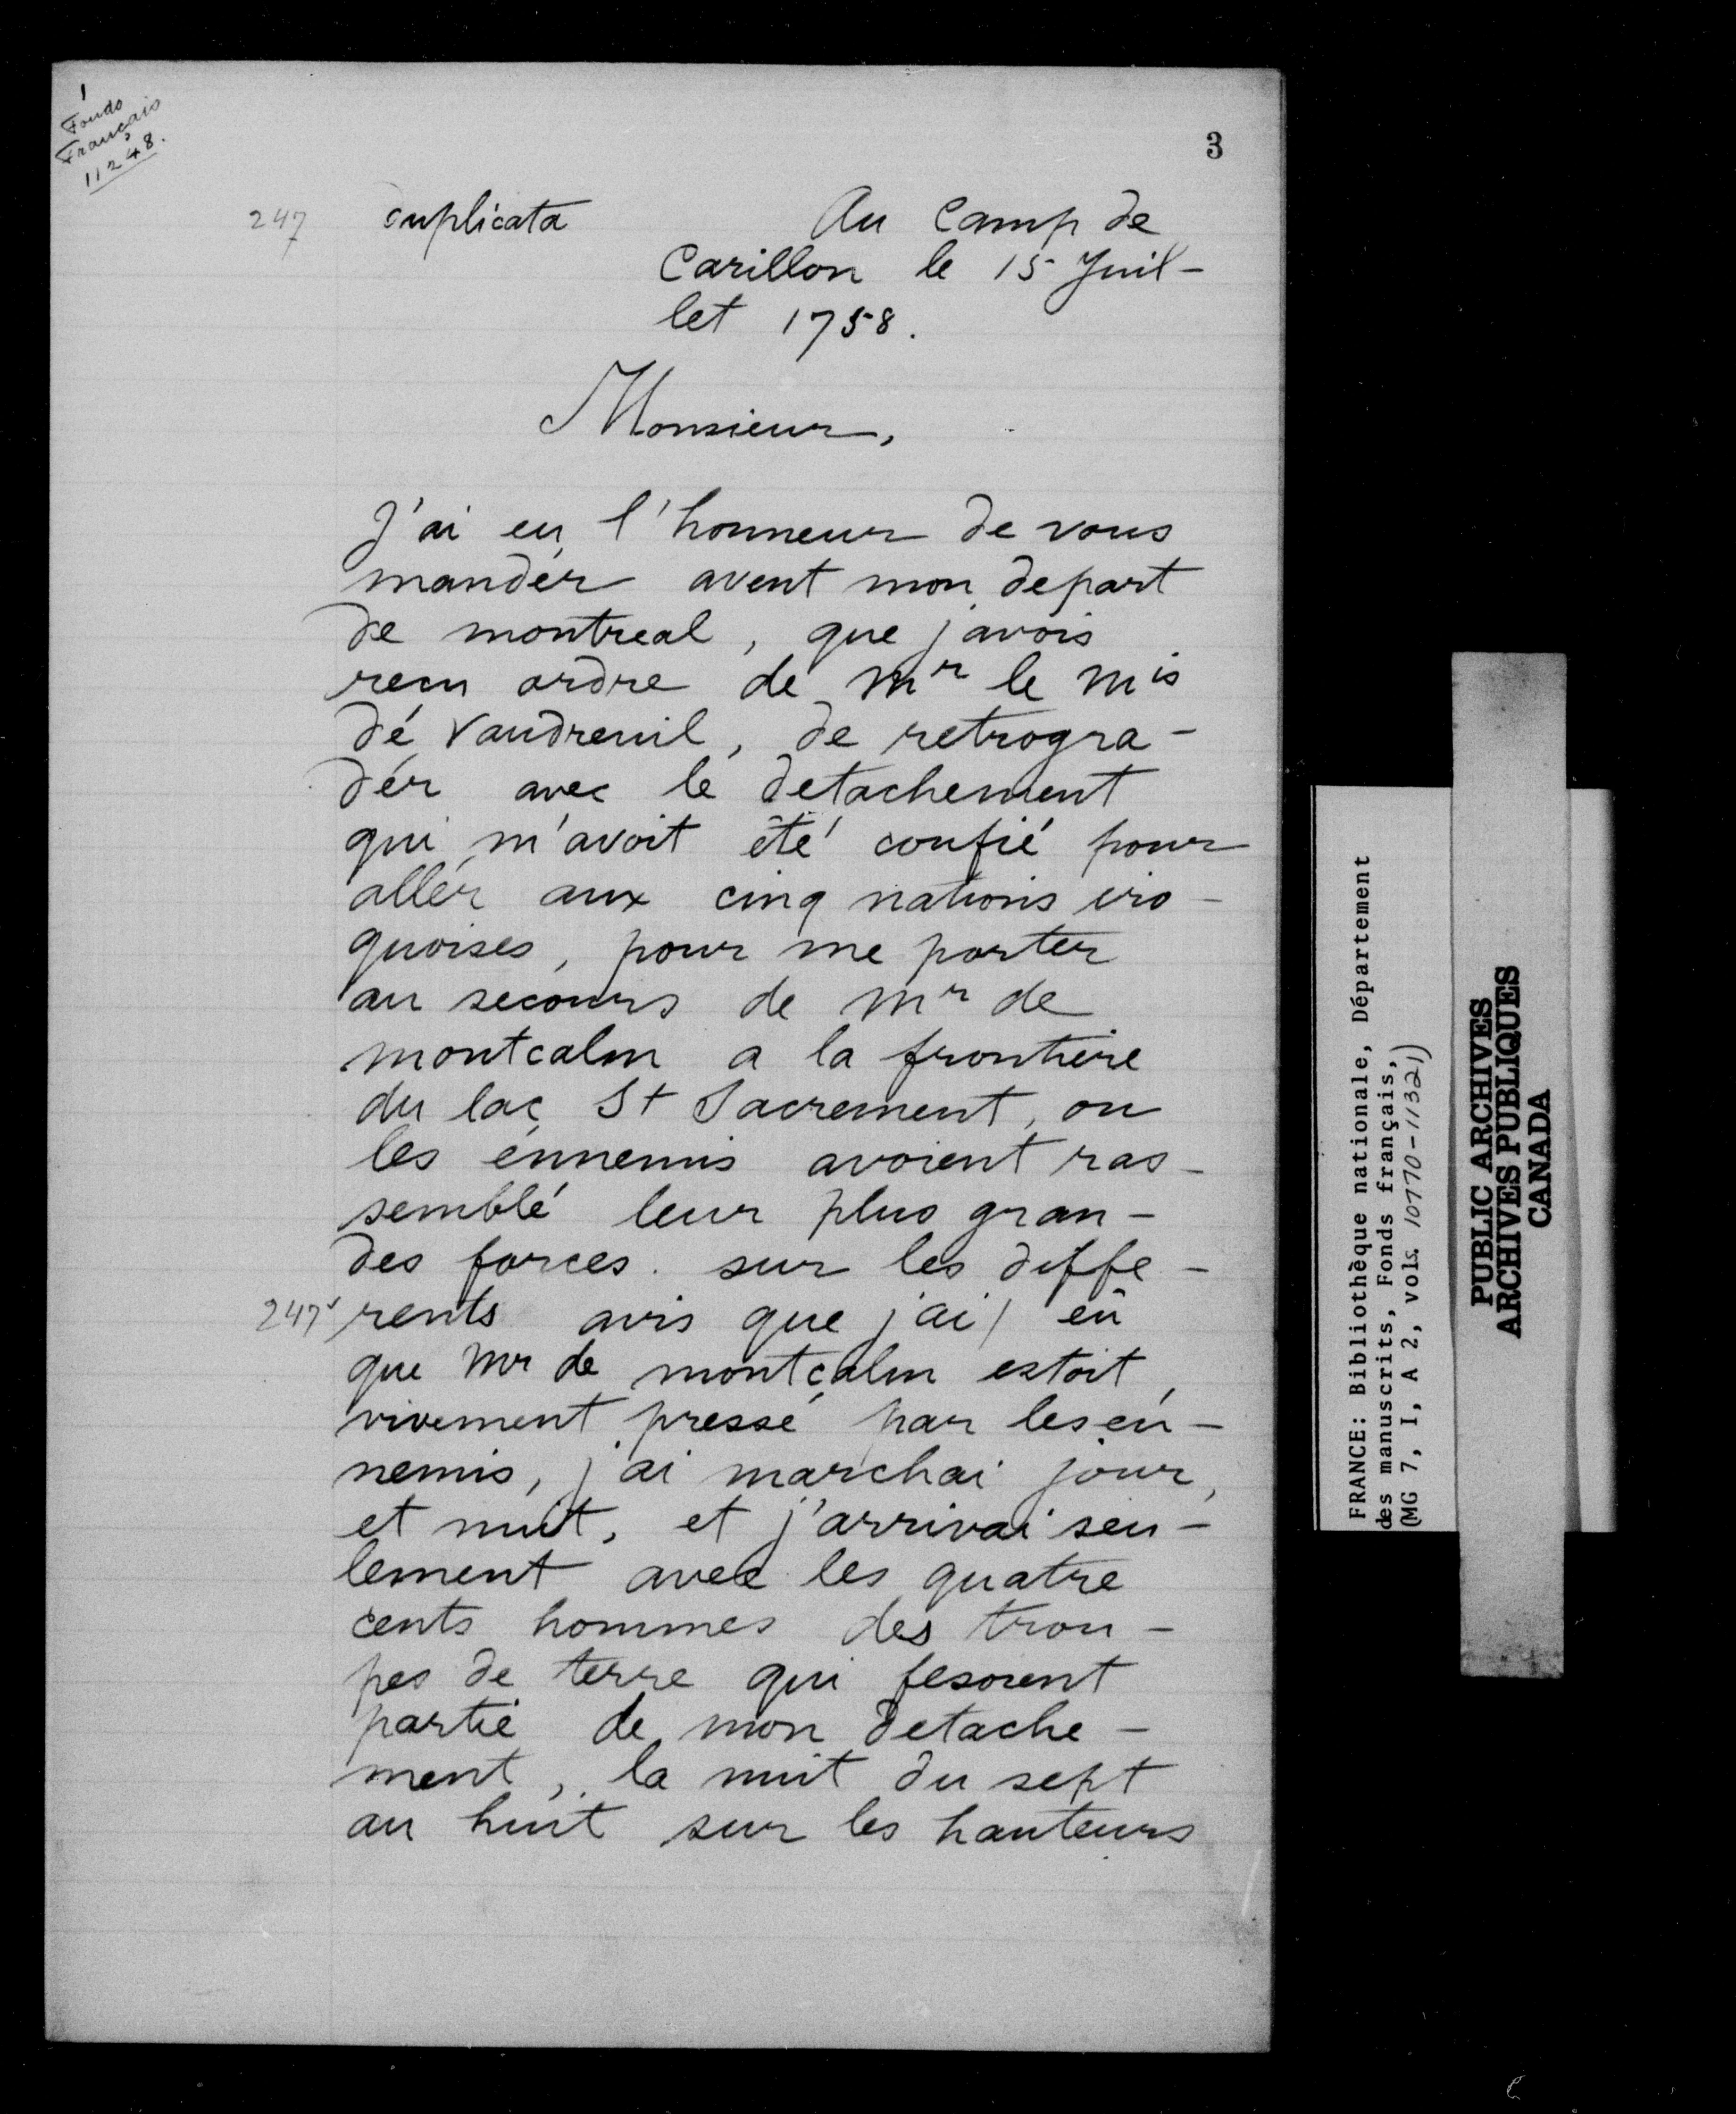 1
Fonds
Français
11248.
3
247 duplicata Au Camp de
Carillon le 15 Juil-
let 1758.
Monsieur,
J'ai eu l'honneur de vous
mandér avent mon depart
de montreal, que j'avois
recu ordre de Mr le Mis
dé Vaudreuil, de retrogra-
dér avec le detachement
qui m'avoit été confié pour
allér aux cinq nations iro-
quoises, pour me porter
au secours de Mr de
montcalm a la frontiére
du lac St Sacrement, ou
les énnemis avoient ras-
semblé leur plus gran-
des forces. sur les diffe-
247v rents avis que j'ai/ eû
que Mr de montcalm estoit
vivement pressé par les én-
nemis, j'ai marchai jour,
et nuit, et j'arrivai seu-
lement avec les quatre
cents hommes des trou-
pes de terre qui fesoient
partie de mon detache-
ment, la nuit du sept
au huit sur les hauteurs
FRANCE: Bibliothèque nationale, Département
des manuscrits, Fonds français,
(MG 7, I, A 2, vols. 10770-11321)
PUBLIC ARCHIVES
ARCHIVES PUBLIQUES
CANADA